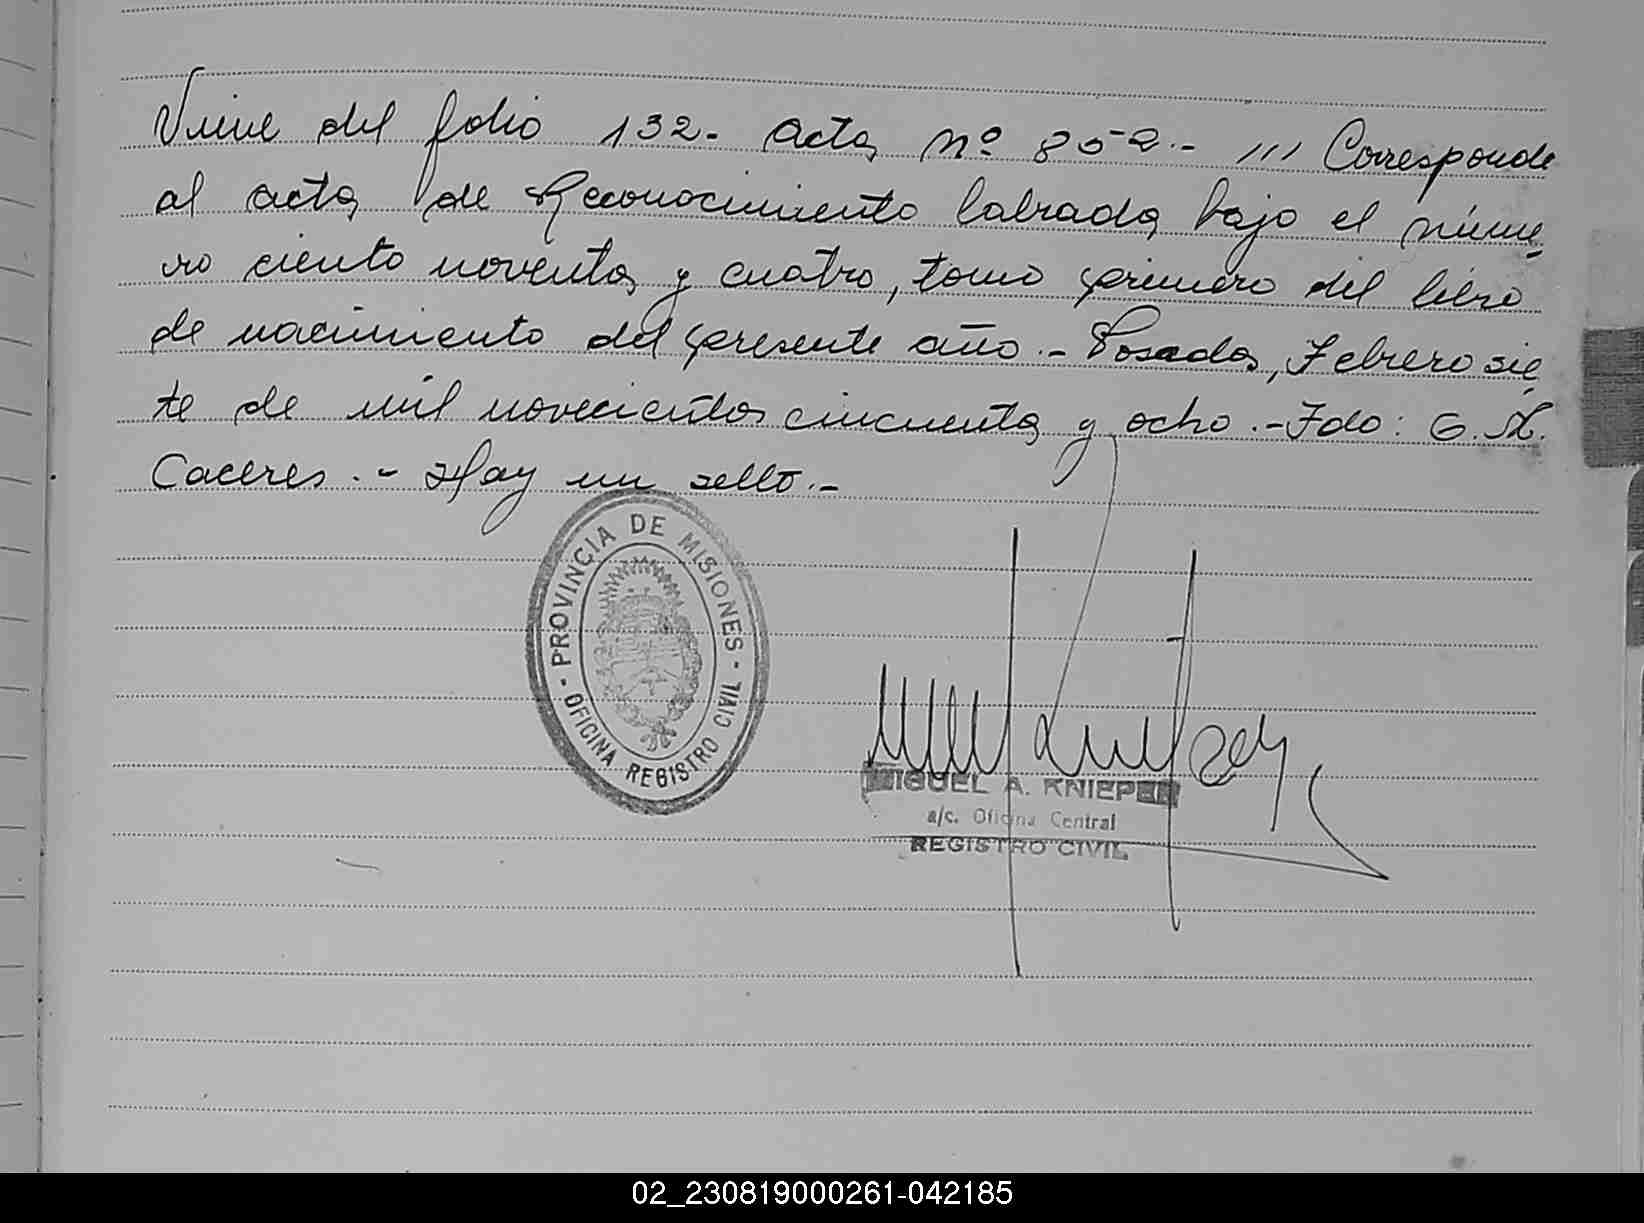 Viene del folio 132.- acta nº 852.- /// Corresponde
al acta de Reconocimiento labrada bajo el núme
ro ciento noventa y cuatro, tomo primero del libro
de nacimiento del presente año.- Posadas, Febrero sie
te de mil novecientos cincuenta y ocho.- Fdo: G. M.
Caceres.- Hay un sello.-
PROVINCIA DE MISIONES
OFICINA REGISTRO CIVIL
MIGUEL A. KNIEPER
a/c. Oficina Central
REGISTRO CIVIL
02_230819000261-042185